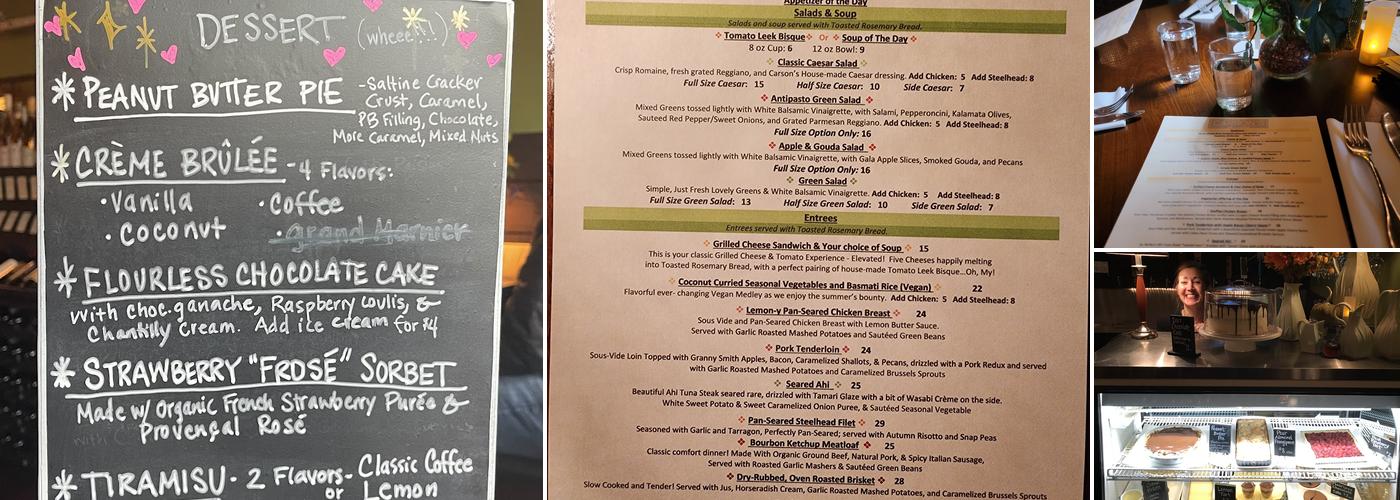 DESSERT (wheee!!)
* PEANUT BUTTER PIE -Saltine Cracker
Crust, Caramel,
PB Filling, Chocolate,
More Caramel, Mixed Nuts
* CRÈME BRÛLÉE - 4 Flavors:
• Vanilla • Coffee
• coconut • grand Marnier
* FLOURLESS CHOCOLATE CAKE
with choc. ganache, Raspberry Coulis, &
Chantilly Cream. Add ice cream for $4
* STRAWBERRY "FROSÉ" SORBET
Made w/ Organic French Strawberry Purée &
Provençal Rosé
* TIRAMISU - 2 Flavors - Classic Coffee
or Lemon
Appetizer of the Day
Salads & Soup
Salads and soup served with Toasted Rosemary Bread.
Tomato Leek Bisque Or Soup of The Day
8 oz Cup: 6 12 oz Bowl: 9
Classic Caesar Salad
Crisp Romaine, fresh grated Reggiano, and Carson's House-made Caesar dressing. Add Chicken: 5 Add Steelhead: 8
Full Size Caesar: 15 Half Size Caesar: 10 Side Caesar: 7
Antipasto Green Salad
Mixed Greens tossed lightly with White Balsamic Vinaigrette, with Salami, Pepperoncini, Kalamata Olives,
Sauteed Red Pepper/Sweet Onions, and Grated Parmesan Reggiano. Add Chicken: 5 Add Steelhead: 8
Full Size Option Only: 16
Apple & Gouda Salad
Mixed Greens tossed lightly with White Balsamic Vinaigrette, with Gala Apple Slices, Smoked Gouda, and Pecans
Full Size Option Only: 16
Green Salad
Simple, Just Fresh Lovely Greens & White Balsamic Vinaigrette. Add Chicken: 5 Add Steelhead: 8
Full Size Green Salad: 13 Half Size Green Salad: 10 Side Green Salad: 7
Entrees
Entrees served with Toasted Rosemary Bread.
Grilled Cheese Sandwich & Your choice of Soup 15
This is your classic Grilled Cheese & Tomato Experience - Elevated! Five Cheeses happily melting
into Toasted Rosemary Bread, with a perfect pairing of house-made Tomato Leek Bisque...Oh, My!
Coconut Curried Seasonal Vegetables and Basmati Rice (Vegan) 22
Flavorful ever- changing Vegan Medley as we enjoy the summer's bounty. Add Chicken: 5 Add Steelhead: 8
Lemon-y Pan-Seared Chicken Breast 24
Sous Vide and Pan-Seared Chicken Breast with Lemon Butter Sauce.
Served with Garlic Roasted Mashed Potatoes and Sautéed Green Beans
Pork Tenderloin 24
Sous-Vide Loin Topped with Granny Smith Apples, Bacon, Caramelized Shallots, & Pecans, drizzled with a Pork Redux and served
with Garlic Roasted Mashed Potatoes and Caramelized Brussels Sprouts
Seared Ahi 25
Beautiful Ahi Tuna Steak seared rare, drizzled with Tamari Glaze with a bit of Wasabi Crème on the side.
White Sweet Potato & Sweet Caramelized Onion Puree, & Sautéed Seasonal Vegetable
Pan-Seared Steelhead Filet 29
Seasoned with Garlic and Tarragon, Perfectly Pan-Seared; served with Autumn Risotto and Snap Peas
Bourbon Ketchup Meatloaf 25
Classic comfort dinner! Made With Organic Ground Beef, Natural Pork, & Spicy Italian Sausage,
Served with Roasted Garlic Mashers & Sautéed Green Beans
Dry-Rubbed, Oven Roasted Brisket 28
Slow Cooked and Tender! Served with Jus, Horseradish Cream, Garlic Roasted Mashed Potatoes, and Caramelized Brussels Sprouts